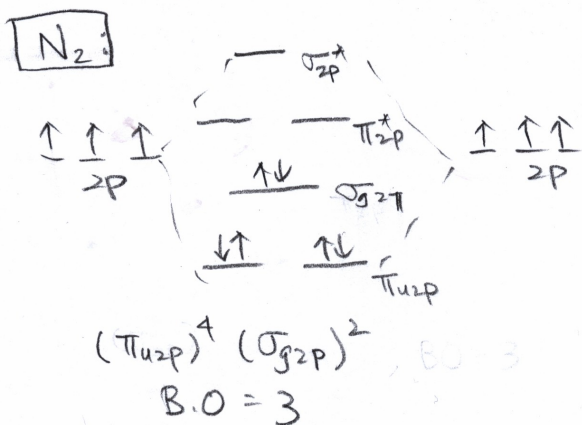 N₂:
σ₂ₚ*
π₂ₚ*
↑ ↑ ↑
2p
↑ ↑ ↑
2p
↑↓ σg2π
↓↑ ↑↓ πu2p
(πu2p)⁴ (σg2p)²
, BO - 3
B.O = 3